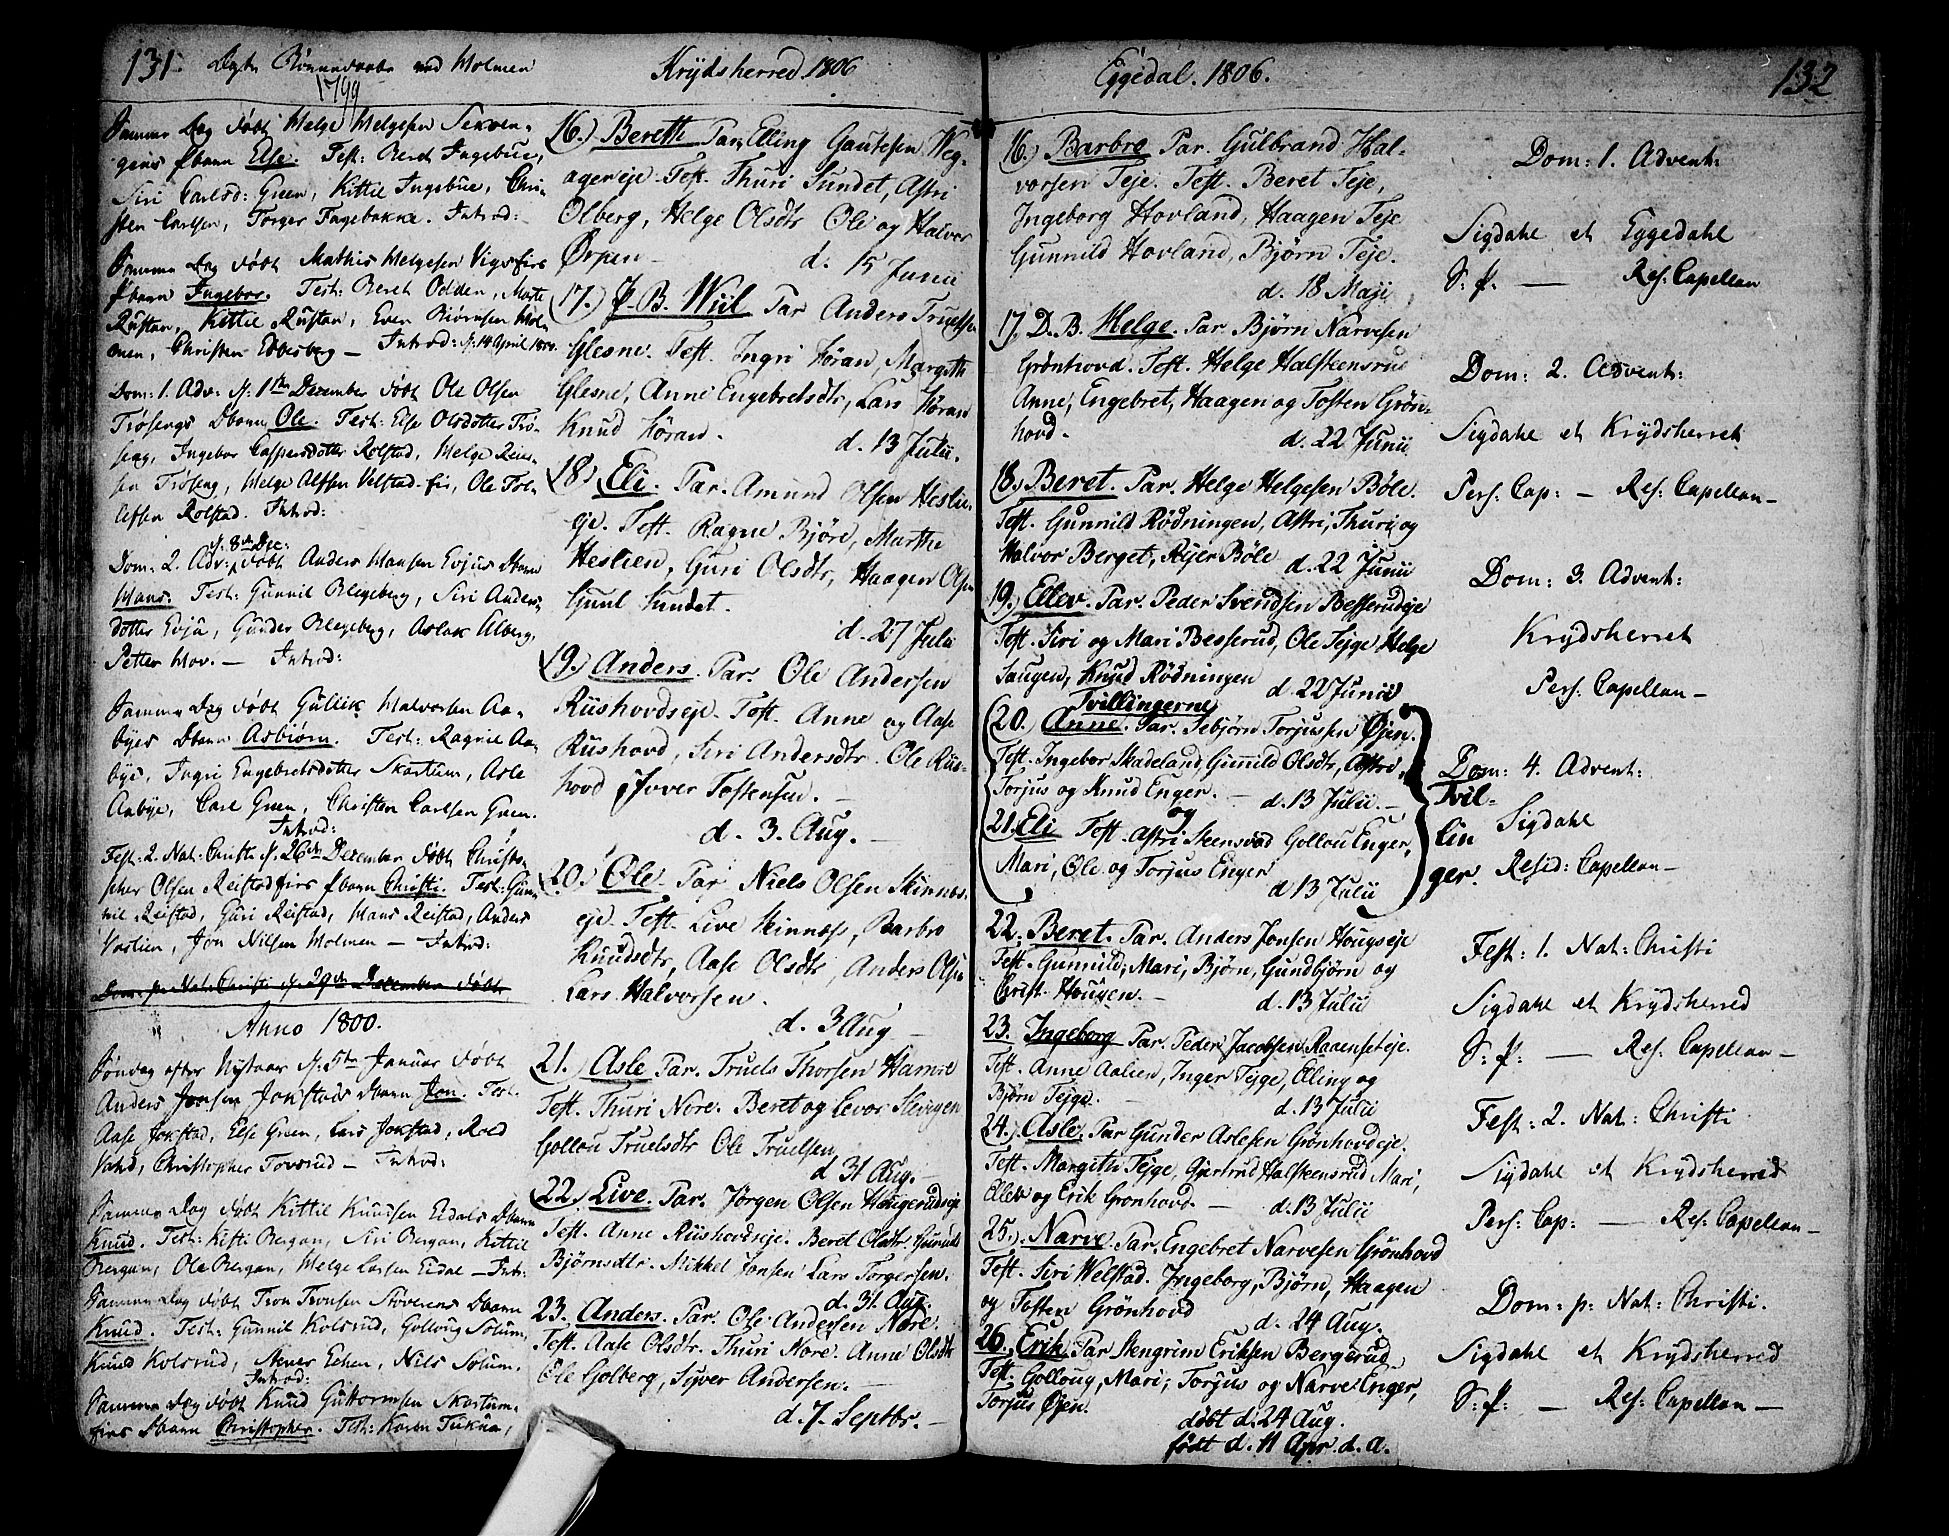 131. Døgte Børnene ved Holmen
1799
Samme Dag døbt Helge Helgesen Sekven-
gens Pbarn Else. Test: Berth Ingebue,
Siri Carlsd: Green, Kittil Ingebue, Chri-
sten Carlsen, Torger Fagebakke. Introd:
Samme Dag døbt Mathis Helgesen Vigs fies
Pbarn Ingebor. Test: Beret Odden, Marte
Rustan, Kittil Rustan, Even Biørnsen Hol-
men, Christen Ebbesberg — Introd: d. 14 April 1800.
Dom: 1. Adv: d. 1ste December døbt Ole Olsen
Trøsengs Dbarn Ole. Test: Else Olsdotter Trø-
seng, Ingebor Caspersdotter Rolstad, Helge Reier-
sen Trøseng, Helge Alfsen Velstad-fie, Ole Tol-
lefsen Rolstad. Introd:
d. 8de Dec:
Dom: 2. Adv: døbt Anders Hansen Evjus Dbarn
Hans. Test: Gunnil Blegeberg, Siri Anders-
dotter Evju, Gunder Blegeberg, Aslak Alberg,
Petter Hov. — Introd:
Samme Dag døbt Gullik Halvorsen Aa-
byes Dbarn Asbiørn. Test: Ragnil Aa-
bye, Ingri Engebretsdotter Skartum, Asle
Aabye, Carl Green, Christen Carlsen Green.
Introd:
Fest: 2. Nat: Christi d. 26de December døbt Christo-
pher Olsen Reistad fies Pbarn Christi. Test: Gun-
nil Reistad, Guri Reistad, Hans Reistad, Anders
Vaslien, Jon Nilsen Holmen — Introd:
Dom: p: Nat: Christi d. 29de December døbt
Anno 1800.
Søndag efter Nytaar d. 5te Januar døbt
Anders Jonsen Jonstads Dbarn Jon. Test:
Aase Jokstad, Else Green, Lars Jokstad, Roed
Vahd, Christopher Tovsrud — Introd:
Samme Dag døbt Kittil Knudsen Eidals Dbarn
Knud. Test: Kisti Bergan, Siri Bergan, Kittil
Bergan, Ole Bergan, Helge Larsen Eidal — Intr:
Samme Dag døbt Tron Tronsen Støverens Dbarn
Knud. Test: Gunnil Kolsrud, Gollaug Solum,
Knud Kolsrud, Stener Echen, Nils Solum.
Introd:
Samme Dag døbt Knud Guttormsen Skartum-
fies Dbarn Christopher. Test: Karen Tukua,
Krydsherred 1806
16.) Bereth Par. Elling Gautesen Veg-
ager eje. Test. Thuri Sundet, Astri
Olberg, Helge Olsdtr Ole og Halvor
Ørpen — d. 15 Junii
17.) P. B. Wiil Par Anders Truelsen
Glesne. Test. Ingri Høran, Margith
Glesne, Anne Engebretsdtr, Lars Høran
Knud Høran. d. 13 Julii.
18.) Eli. Par. Amund Olsen Heslie-
eje. Test. Ragne Bjøre, Marthe
Heslien, Guri Olsdtr, Haagen Olsen
Gunl Sundet.
d. 27 Julii
19.) Anders. Par. Ole Andersen
Riishovdseje. Test. Anne og Aase
Riishovd, Siri Andersdtr. Ole Riis-
hovd Iver Tostensen. —
d. 3. Aug. —
20.) Ole. Par Niels Olsen Skinnes-
eje. Test. Live Skinnes, Barbro
Knudsdtr, Aase Olsdtr, Anders Olsen
Lars Halvorsen.
d. 3 Aug —
21.) Asle Par. Truels Thorsen Hamre
Test. Thuri Nore. Beret og Levor Slevigen
Gollou Truelsdtr Ole Truelsen,
d 31 Aug.
22.) Live. Par. Jørgen Olsen Haugerudseje
Test. Anne Riishovdseje. Beret Olsdtr. Gunild
Bjørnsdtr. Mikkel Jonsen Lars Torgersen.
d. 31. Aug.
23. Anders. Par. Ole Andersen Nore.
Test. Aase Olsdtr. Thuri Nore. Anne Olsdtr
Ole Golberg, Syver Andersen. —
d. 7. Septbr. —
Eggedal. 1806.
16.) Barbro Par. Gulbrand Hal-
vorsen Teje. Test. Beret Teje,
Ingeborg Hovland, Haagen Teje
Gunnild Hovland, Bjørn Teje.
d. 18 Maji
17. D. B. Helge. Par. Bjørn Narvesen
Grønhovd. Test. Helge Halsteensrud
Anne, Engebret, Haagen og Tosten Grøn-
hovd. d. 22 Junii
18.) Beret. Par. Helge Helgesen Bøle.
Test. Gunnild Rødningen, Astri, Thuri og
Halvor Berget, Rejer Bøle d. 22 Junii
19.) Ellev. Par. Peder Svendsen Besserudeje
Test. Siri og Mari Besserud, Ole Tejge Helge
Haugen, Knud Rødningen d. 22 Junii
Tvillingerne
20. Anne. Par. Sebjørn Torjussen Øjen.
Test. Ingebor Skadeland, Gunnild Olsdtr, Astri,
Torjus og Knud Enger. — d. 13 Julii. —
og
21. Eli Test. Astri Steensrud Gollou Enger,
Mari, Ole og Torjus Enger
d 13 Julii
Tvil-
lin
ger.
22. Beret. Par. Anders Jonsen Hougseje
Test. Gunnild, Mari, Bjørn, Gundbjørn og
Christ. Hougen. — d. 13 Julii
23. Ingeborg Par. Peder Jacobsen Raaenseteje.
Test. Anne Aalien, Inger Tejge, Elling og
Bjørn Tejge. d. 13 Julii
24.) Asle. Par Gunder Aslesen Grønhovdeje.
Test. Margith Tejge, Gjertrud Halsteensrud, Mari,
Ellev og Erik Grønhovd. — d. 13 Julii
25.) Narve. Par. Engebret Narvesen Grønhovd
Test. Siri Welstad. Ingeborg, Bjørn, Haagen
og Tosten Grønhovd d. 24 Aug.
26. Erik. Par Stengrim Eriksen Bergerud
Test. Golloug, Mari, Torjus og Narve Enger,
Torjus Øjen.
døbt d. 24 Aug.
født d. 11 Apr. d. A.
132
Dom: 1. Advent:
Sigdahl et Eggedahl
S: P. — Res: Capellan
Dom: 2. Advent:
Sigdahl et Krydsherret
Pers: Cap: — Res: Capellan —
Dom: 3. Advent:
Krydsherret
Pers: Capellan —
Dom: 4. Advent:
Sigdahl
Resid: Capellan —
Fest: 1. Nat: Christi
Sigdahl et Krydsherred
S: P: — Res: Capellan —
Fest: 2. Nat: Christi
Sigdahl et Krydsherred
Pers: Cap: — Res: Capellan —
Dom: p: Nat: Christi.
Sigdahl et Krydsherred
S: P: — Res: Capellan —